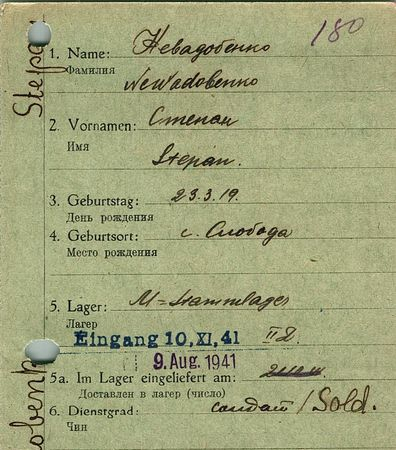 180
Stepa
1. Name: Невадобенко
Фамилия
Newadobenko
2. Vornamen: Степан
Имя
Stepan.
3. Geburtstag: 23.3.19.
День рождения
4. Geburtsort: с. Слобода
Место рождения
5. Lager: M=Stammlager
Лагер
Eingang 10. XI. 41 II D.
9. Aug. 1941
5a. Im Lager eingeliefert am:
Доставлен в лагер (число)
6. Dienstgrad: солдат / Sold.
Чин
obenk